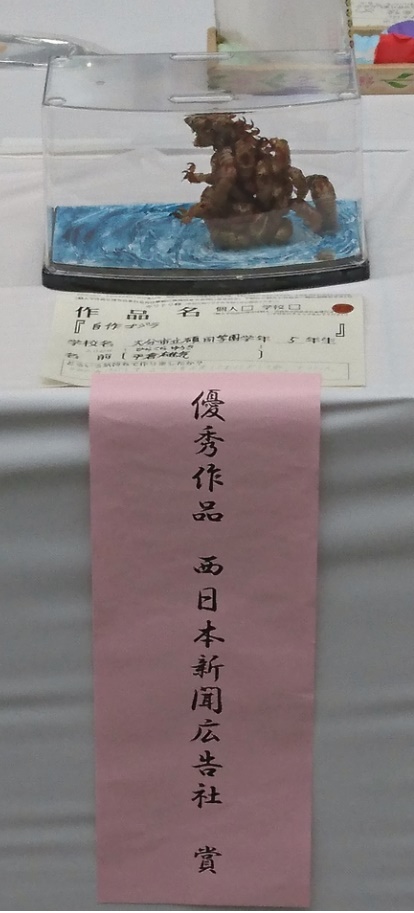 作品名 個人□ 学校□
『自作ゴジラ』
学校名 大分市立碩田学園学年 5年生
名前( )
優秀作品 西日本新聞広告社 賞